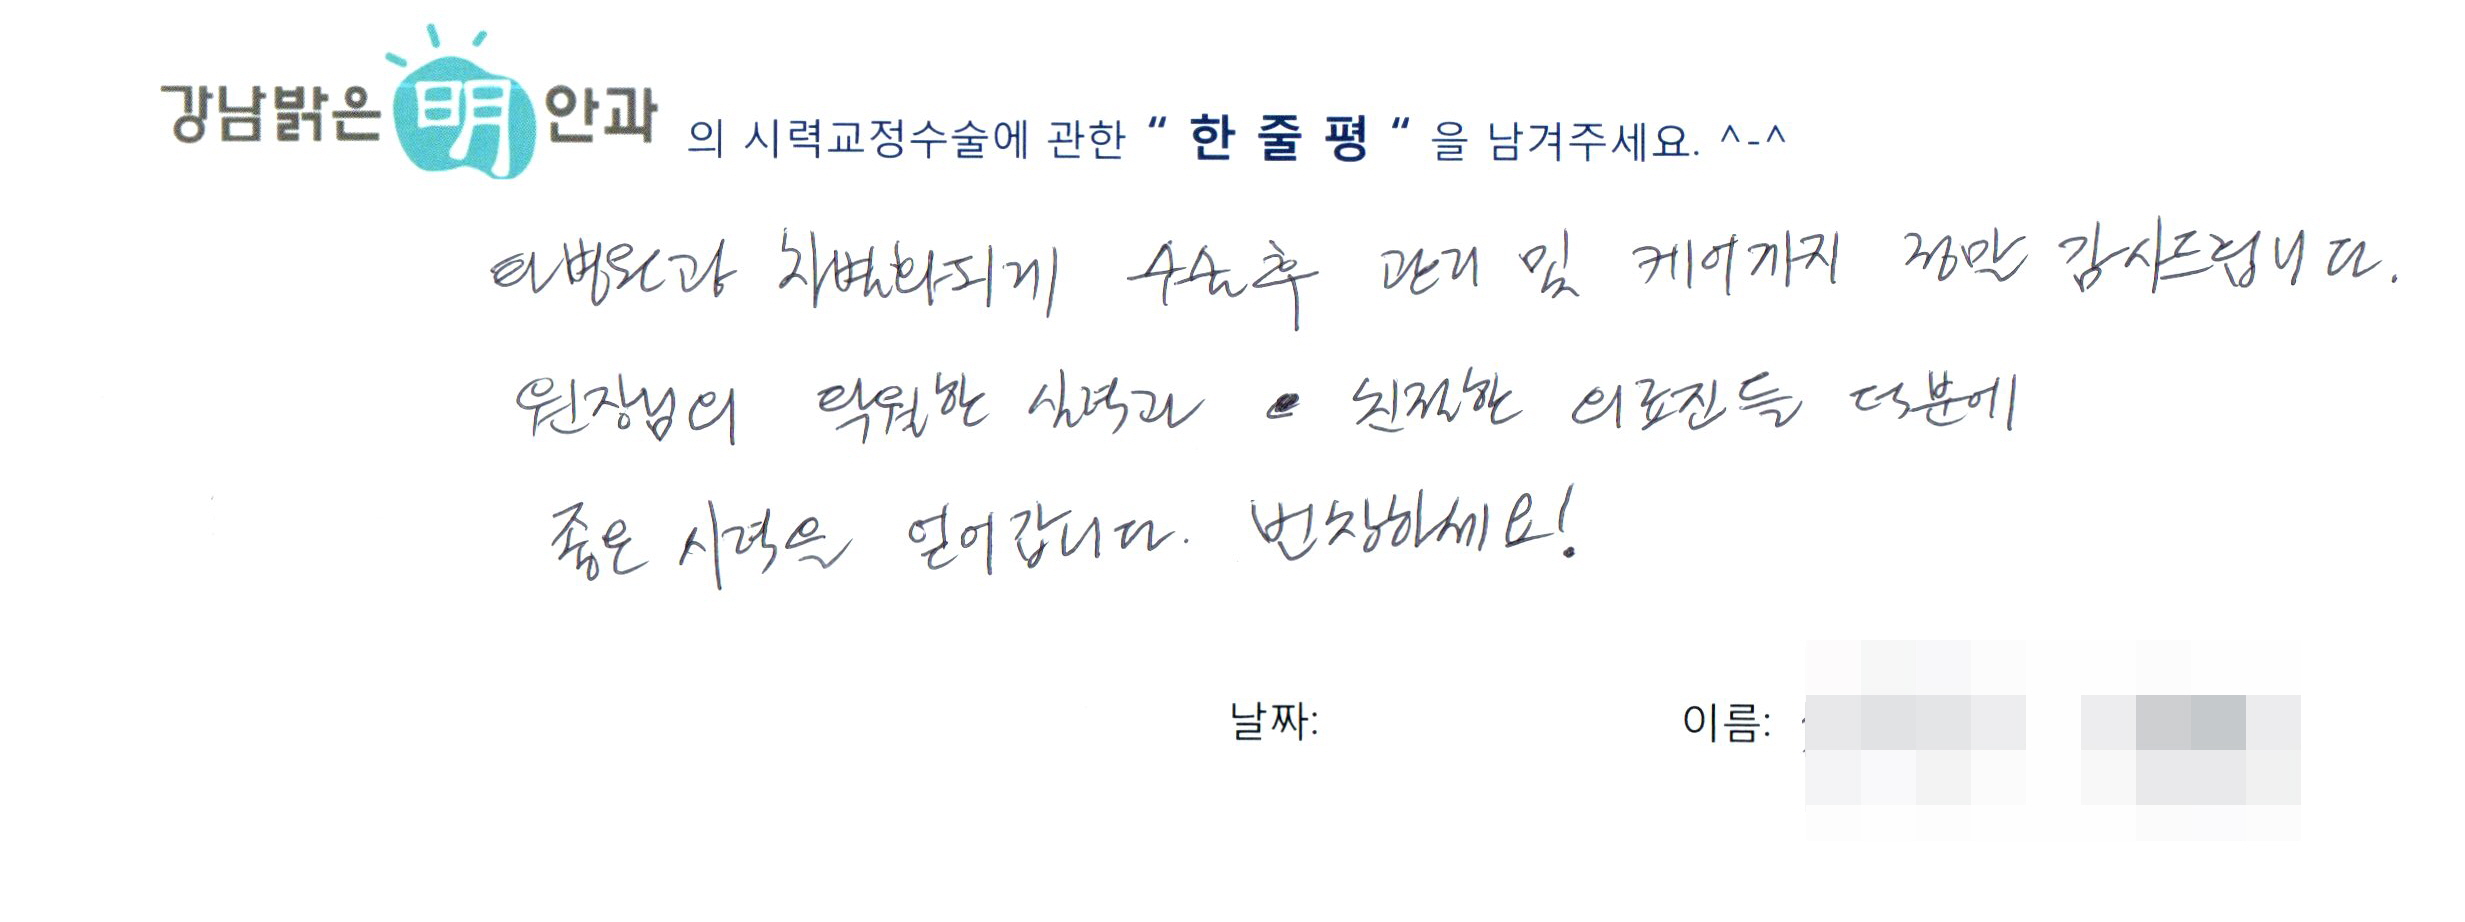 강남밝은 明 안과 의 시력교정수술에 관한 “ 한 줄 평 “ 을 남겨주세요. ^-^
타병원과 차별화되게 수술후 관리 및 케어까지 정말 감사드립니다.
원장님의 탁월한 실력과 친절한 의료진들 덕분에
좋은 시력을 얻어갑니다. 번창하세요!
날짜: 이름: